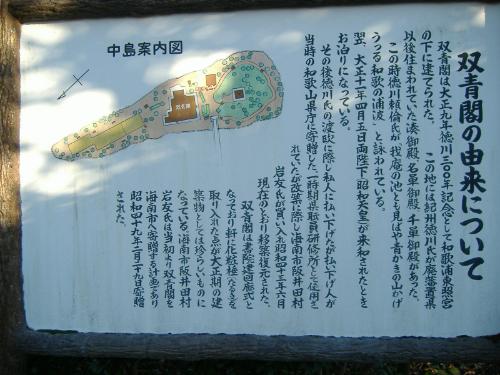 双青閣の由来について
双青閣は大正九年徳川三〇〇年記念として和歌浦東照宮
の下に建てられた。　この地には紀州徳川氏が廃藩置県
以後住まわれていた湊御殿、名草御殿、千草御殿があった。
この時徳川頼倫氏が「我庵の池とも見ばや青かきの山かげ
うつる和歌の浦波」と詠われている。
翌、大正十一年四月五日両陛下（昭和天皇）が来和されたとき
お泊りになっている。
その後徳川氏の渡欧に際し私人に払い下げたが払い下げ人が
当時の和歌山県庁に寄贈した。一時期県職員研修所と使用さ
れていたが改築に際し海南市阪井田村
岩友氏が買い入れ昭和四十三年六月
現在のとおり移築復元された。
双青閣は書院造回廊式と
なっており軒に化粧極たるきを
取り入れた点が大正期の建
築物としては珍らしいものに
なっている。海南市阪井田村
岩友氏は当初より双青閣を
海南市へ寄贈する計画であり
昭和四十九年二月二十九日寄贈
された。
中島案内図
双青閣